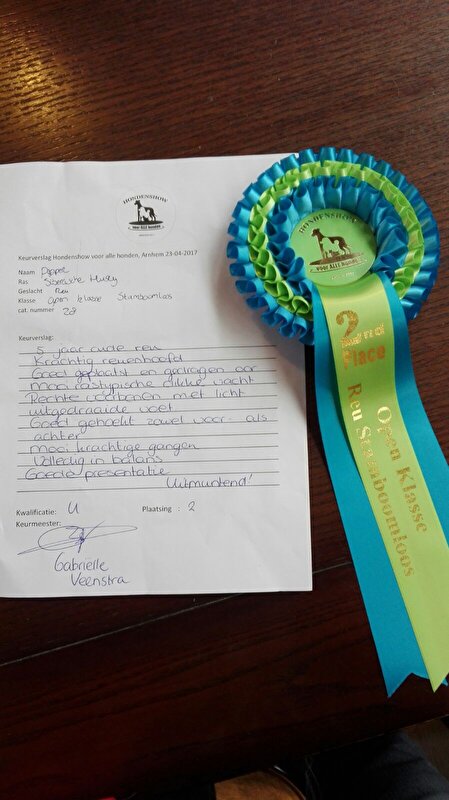 HONDENSHOW
voor ALLE honden
Keurverslag Hondenshow voor alle honden, Arnhem 23-04-2017
Naam
Ras Siberische Husky
Geslacht Reu
Klasse open klasse Stamboomloos
cat. nummer 28
Keurverslag:
5 jaar oude reu
Krachtig reuenhoofd
Goed geplaatst en gedragen oor
Mooi rastypische dikke vacht
Rechte voorbenen met licht
uitgedraaide voet
Goed gehoekt zowel voor- als
achter
Mooi krachtige gangen
Volledig in balans
Goede presentatie
Uitmuntend!
Kwalificatie: U Plaatsing : 2
Keurmeester:
Gabriëlle
Veenstra
HONDENSHOW
voor ALLE honden
2
Place
Open Klasse
Reu Stamboomloos